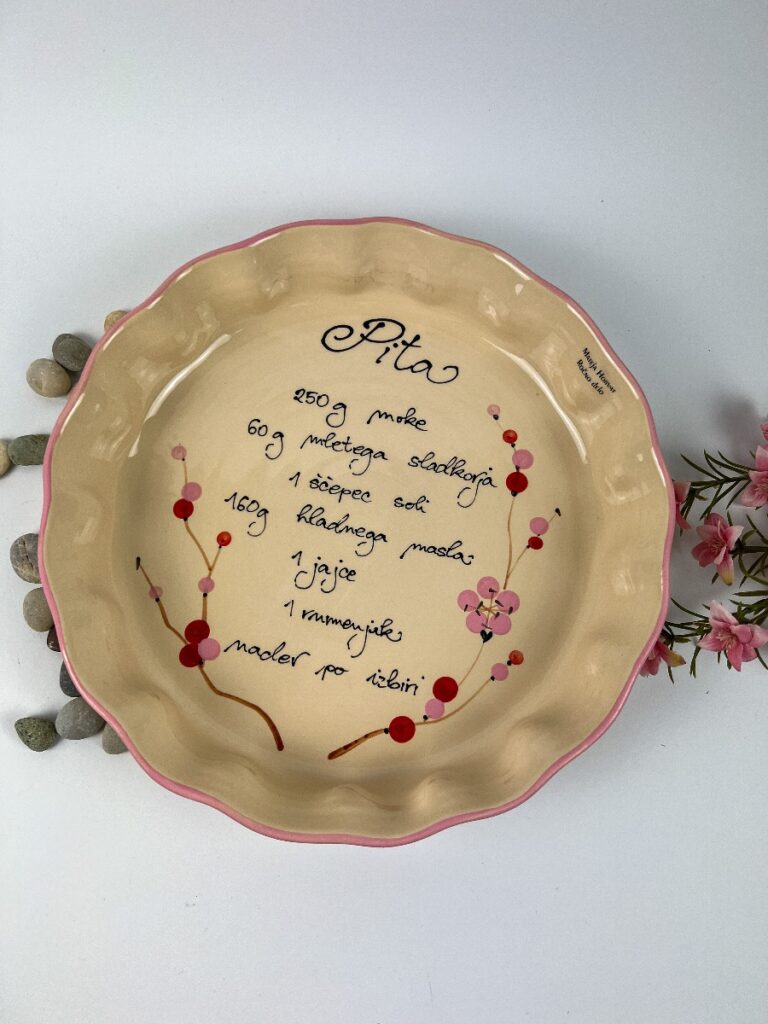 Pita
250 g moke
60 g mletega sladkorja
1 ščepec soli
160g hladnega masla
1 jajce
1 rumenjak
nadev po izbiri
Ročno delo